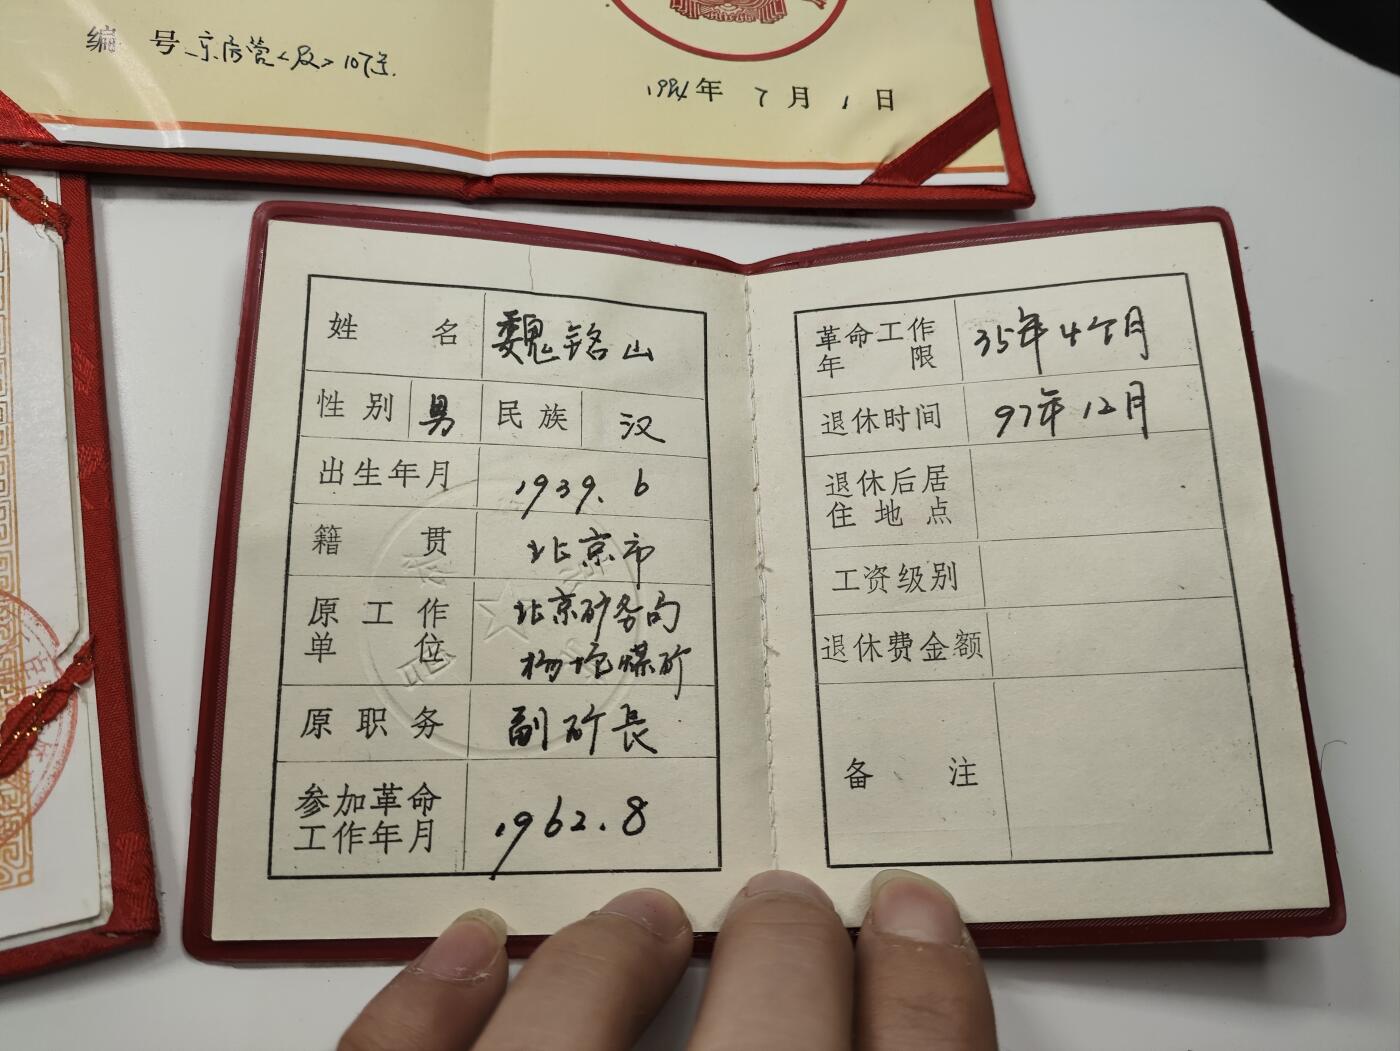 编 号 京房营<发>107号
1984年 7月 1日
姓 名 魏铭山
性别 男 民族 汉
出生年月 1939.6
籍 贯 北京市
原工作
单 位
北京矿务局
杨坨煤矿
原职务 副矿長
参加革命
工作年月
1962.8
革命工作
年 限
35年4个月
退休时间 97年12月
退休后居
住地点
工资级别
退休费金额
备 注